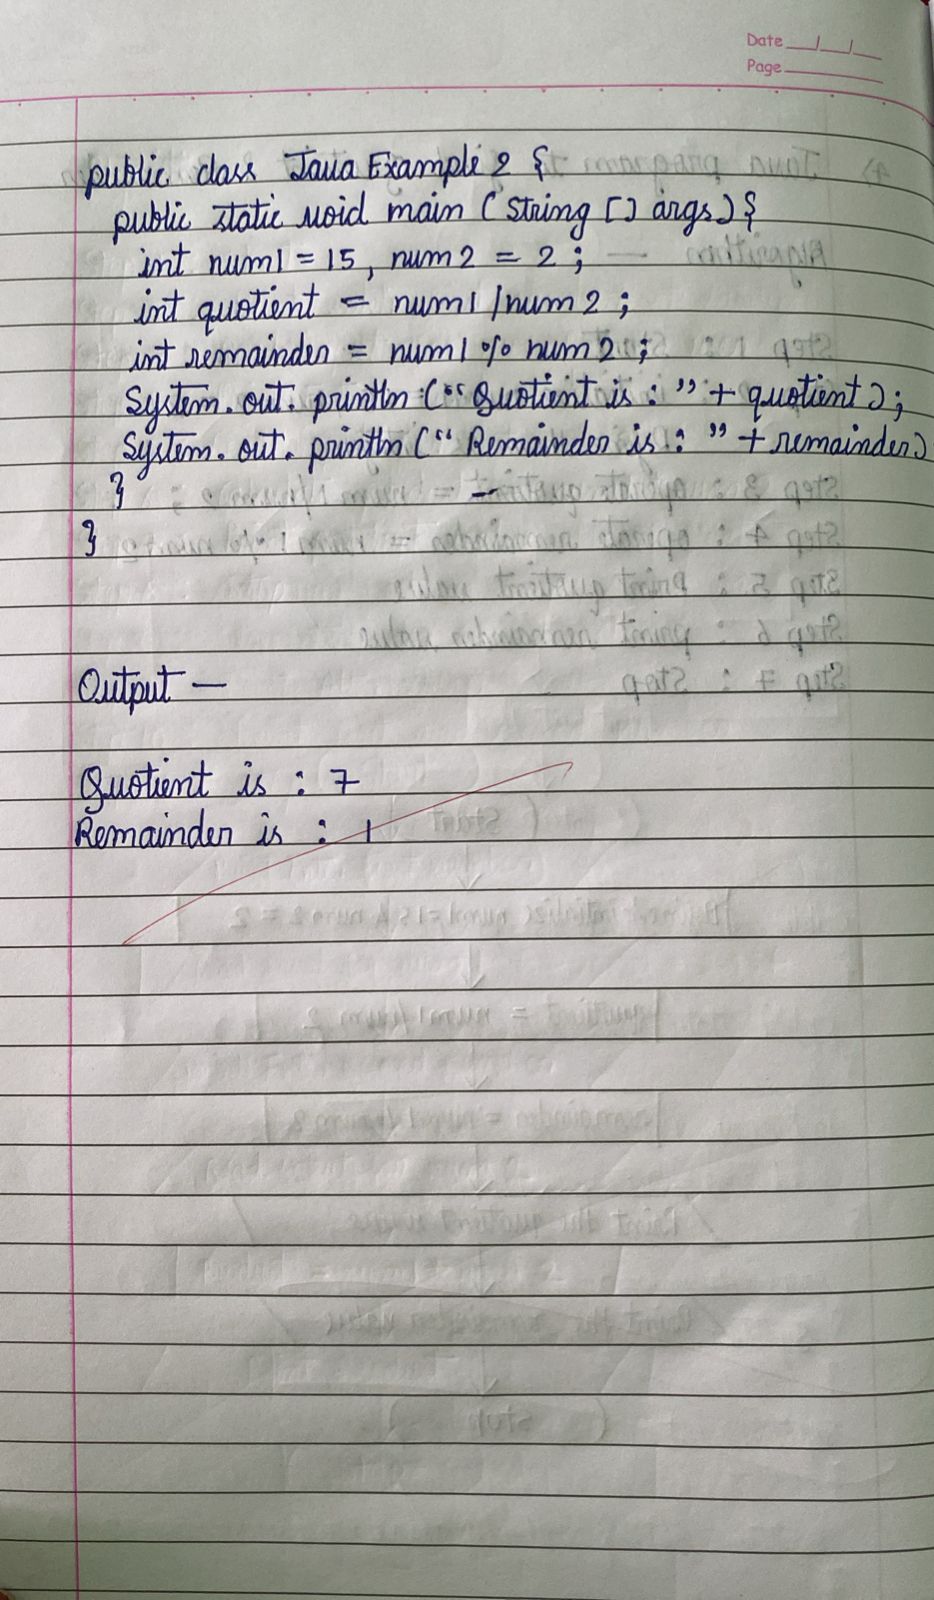 Date
Page
public class Java Example 2 {
public static void main (String [] args) {
int num1 = 15, num2 = 2 ;
int quotient = num1 / num2 ;
int remainder = num1 % num2 ;
System. out. println (“Quotient is : ” + quotient) ;
System. out. println (“ Remainder is : ” + remainder)
}
}
Output —
Quotient is : 7
Remainder is : 1